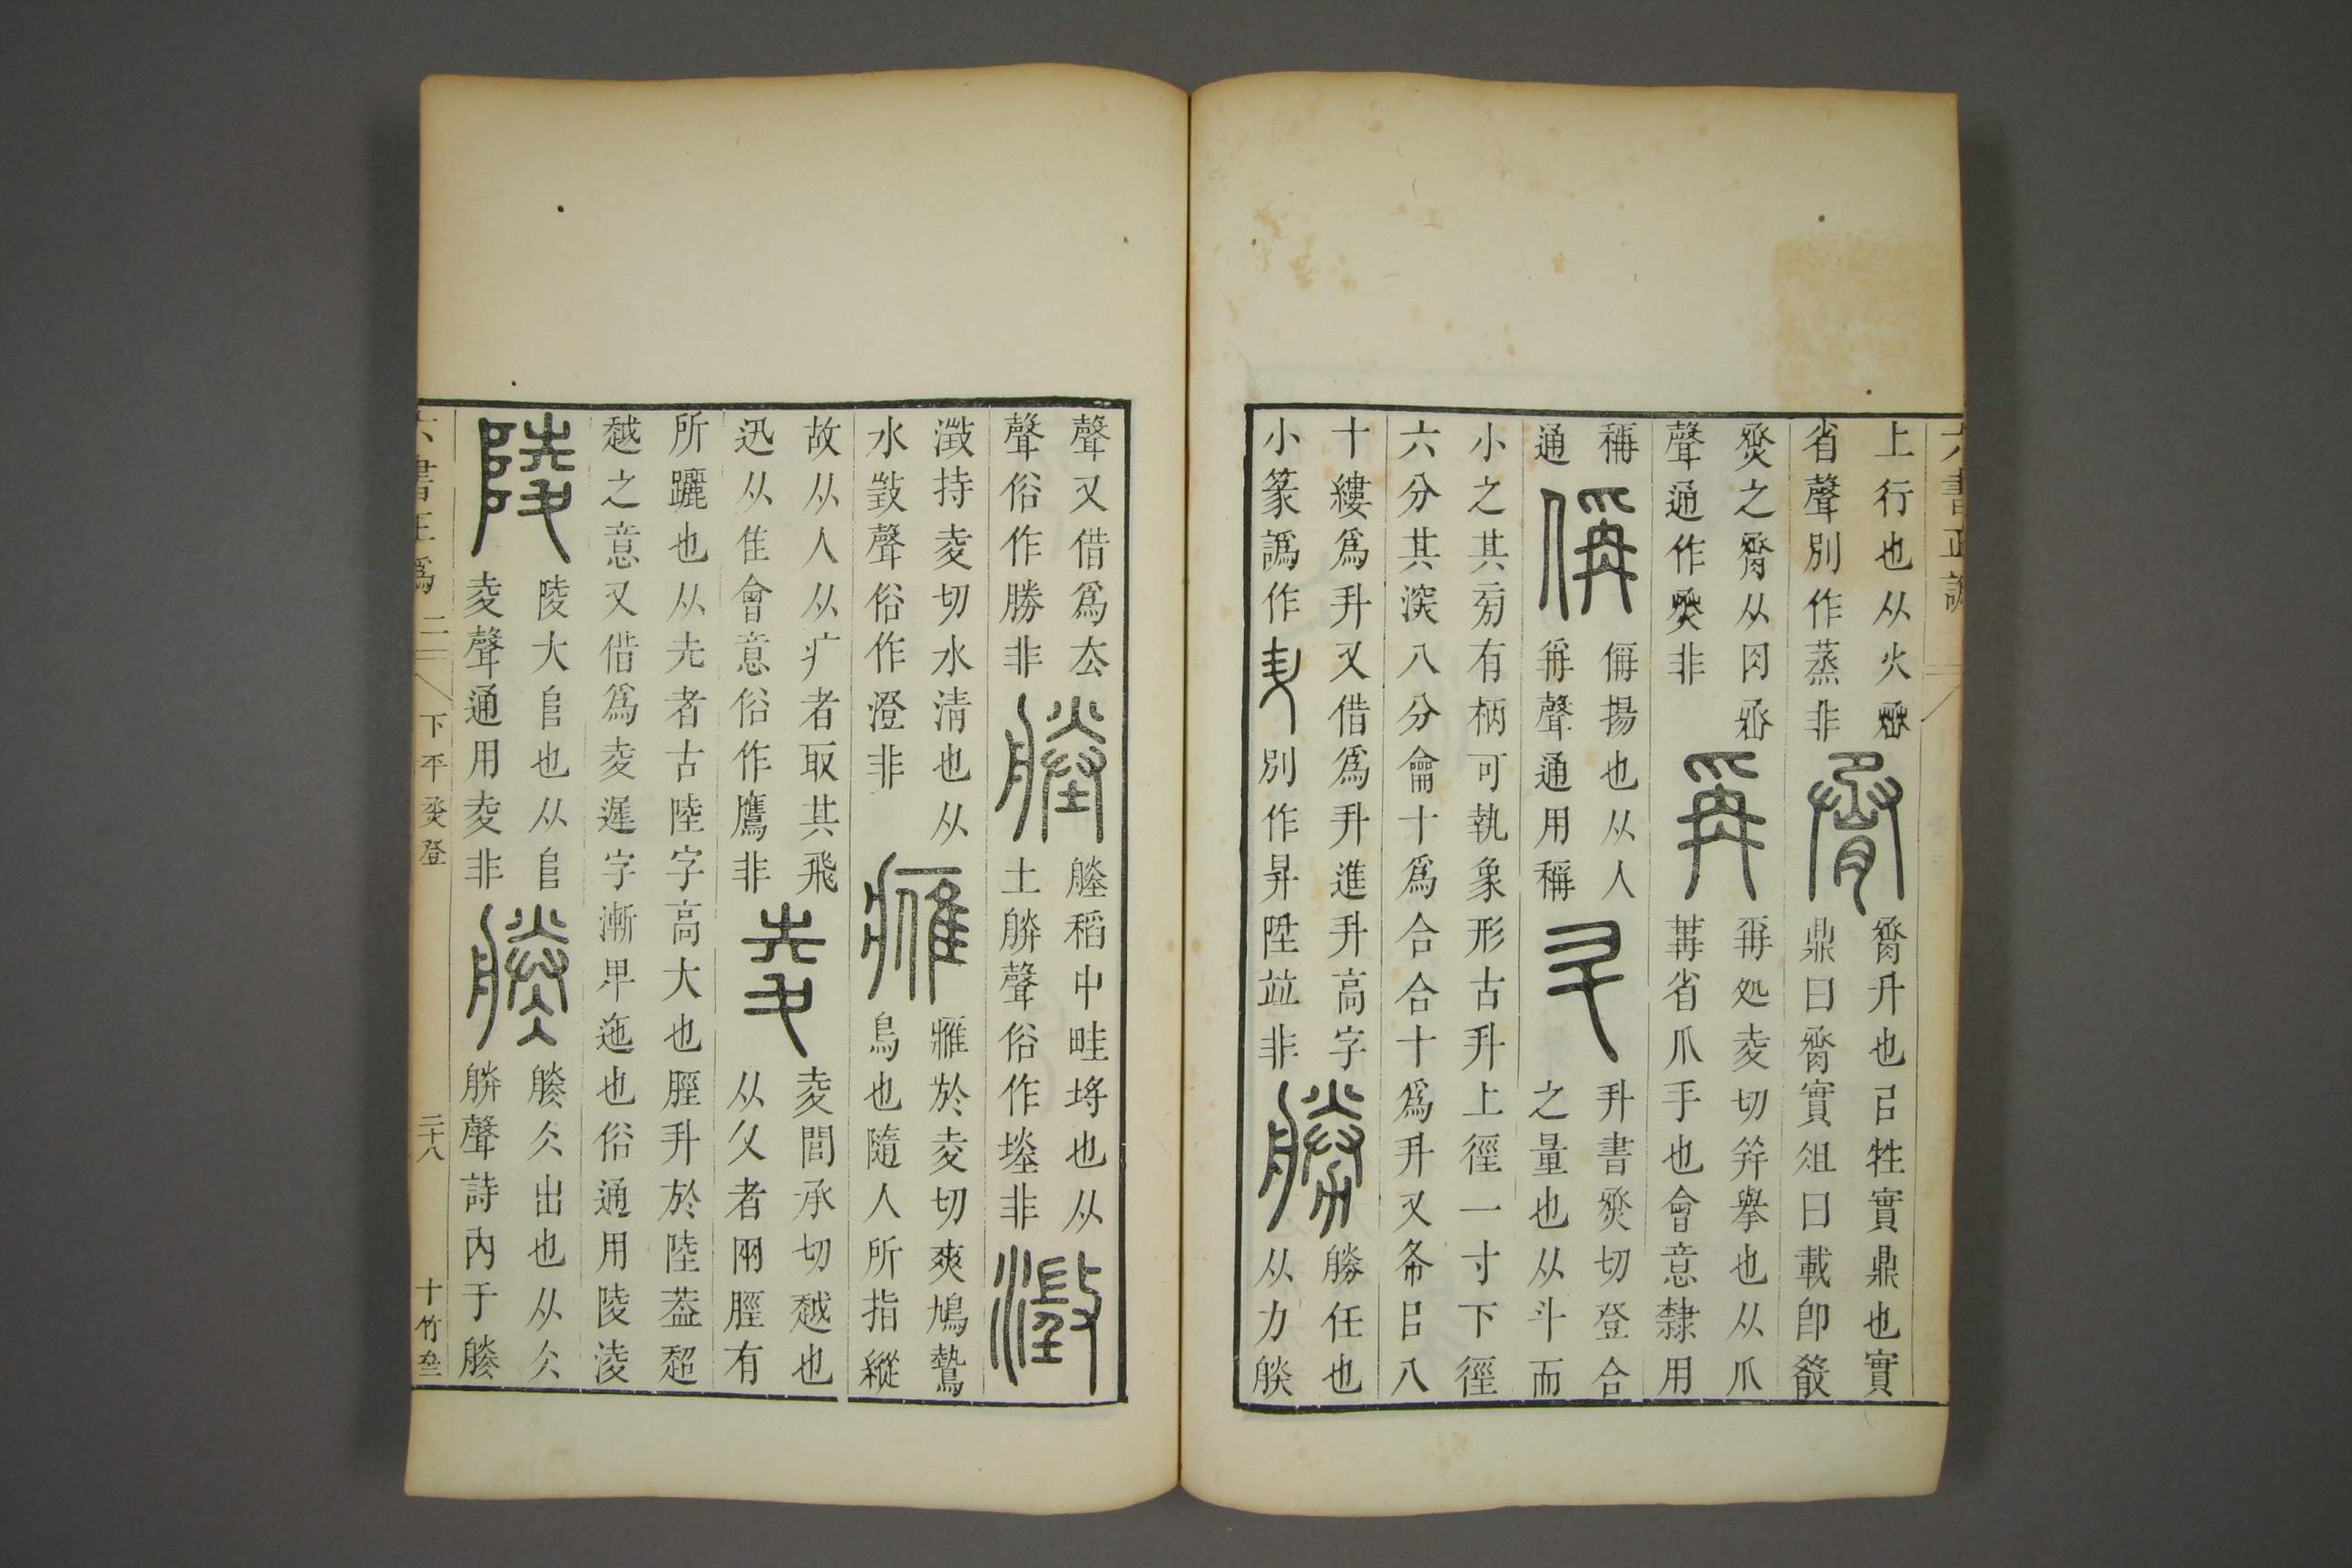 六書正譌
上行也从火烝
省聲別作蒸非
脀
脀升也㠯牲實鼎也實
鼎曰脀實俎曰載卽殽
烝之脀从肉丞
聲通作烝非
爯
爯処夌切幷舉也从爪
冓省爪手也會意隸用
稱
通
偁
偁揚也从人
爯聲通用稱
升
升書烝切登合
之量也从斗而
小之其旁有柄可執象形古升上徑一寸下徑
六分其深八分龠十爲合合十爲升又布㠯八
十縷爲升又借爲升進升高字
小篆譌作 別作昇陞竝非
勝
勝任也
从力朕
聲又借爲去
聲俗作勝非
塍
塍稻中畦埓也从
土朕聲俗作堘非
澂
澂持夌切水清也从
水徵聲俗作澄非
雁
雁於夌切爽鳩鷙
鳥也隨人所指縱
故从人从疒者取其飛
迅从隹會意俗作鷹非
夌
夌閭承切越也
从夊者兩脛有
所躧也从圥者古陸字高大也脛升於陸葢超
越之意又借爲夌遲字漸卑迤也俗通用陵淩
陵
陵大𨸏也从𨸏
夌聲通用夌非
𦩎
𦩎仌出也从仌
朕聲詩内于𦩎
六書正譌 二 下平烝登 二十八 十竹齋